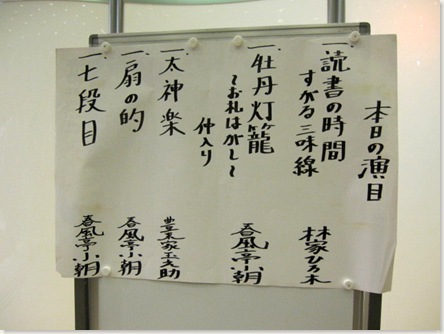 本日の演目
一、読書の時間
すがる三味線 林家ひろ木
一、牡丹灯籠
〜お札はがし〜 春風亭小朝
仲入り
一、太神楽 豊来家玉之助
一、扇の的 春風亭小朝
一、七段目 春風亭小朝